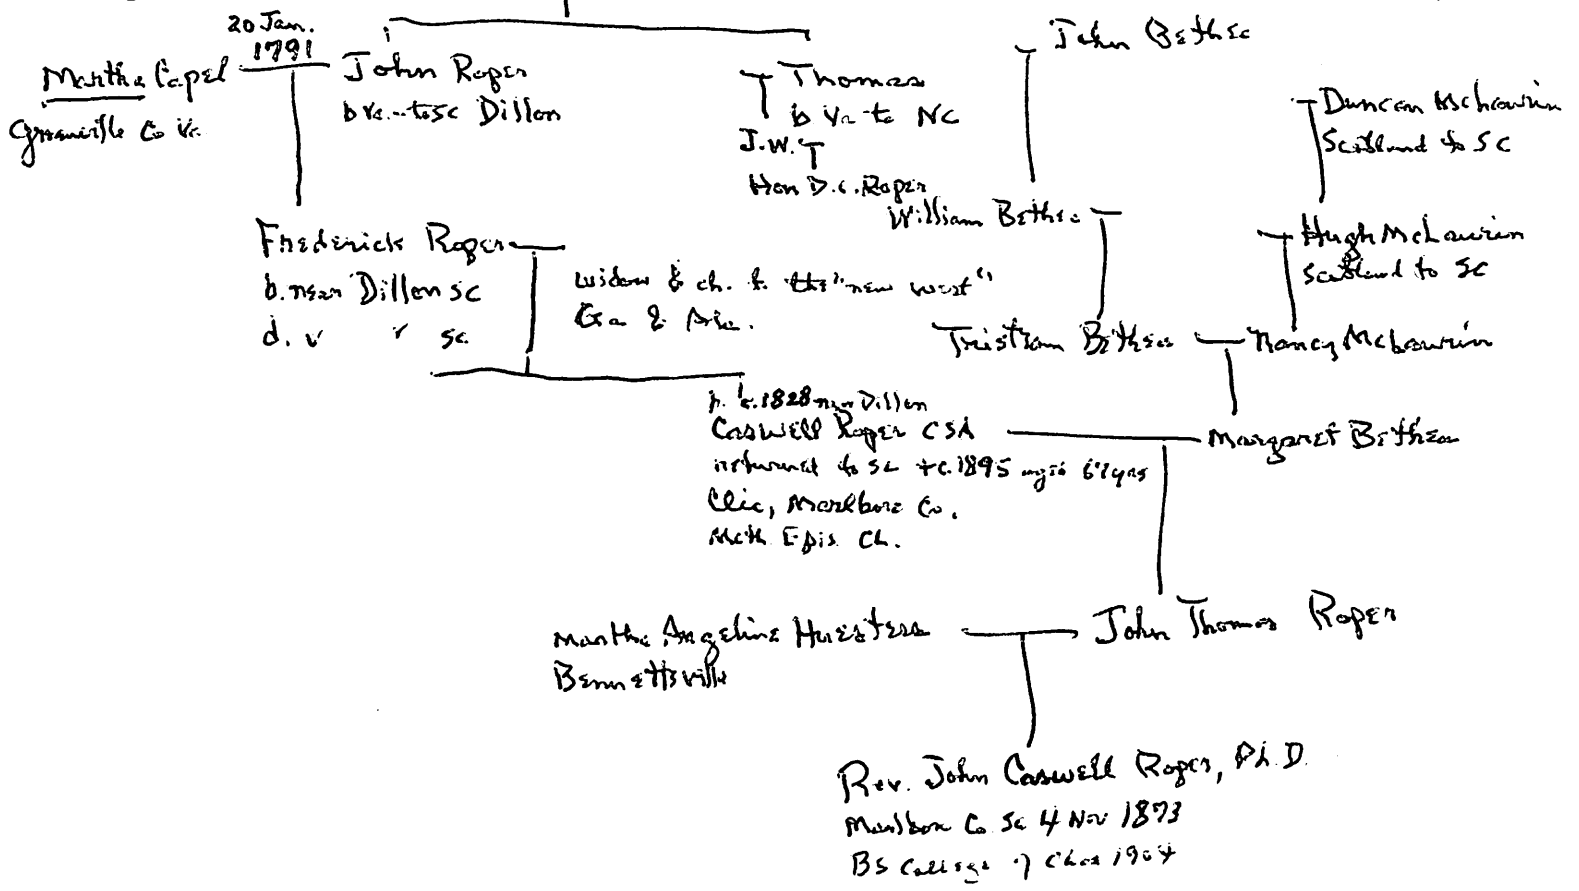 20 Jan.
1791
Martha Capel
John Roper
Greenville Co Va.
b Va. to SC Dillon
Thomas
b Va to NC
J.W.
Hon D.C. Roper
John Bethea
Duncan McLaurin
Scotland to SC
William Bethea
Hugh McLaurin
Scotland to SC
Frederick Roper
b. near Dillon SC
d. " " SC
widow & ch. to the "new west"
Ga & Ala.
Tristram Bethea
Nancy McLaurin
b. c.1828 near Dillon
Caswell Roper CSA
Margaret Bethea
returned to SC + c.1895 aged 67 yrs
Clio, Marlboro Co.
Meth Epis Ch.
Martha Angeline Huesters
Bennettsville
John Thomas Roper
Rev. John Caswell Roper, Ph.D.
Marlboro Co Sc 4 Nov 1873
BS College of Chas 1904